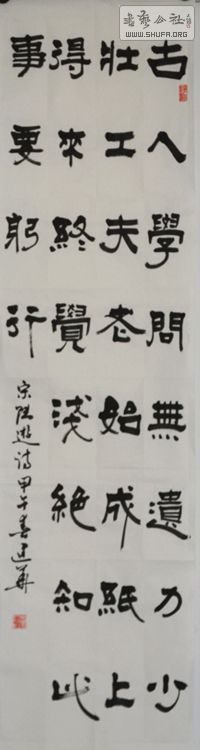 古人學問無遺力少
壯工夫老始成紙上
得來終覺淺絕知此
事要躬行
宋陸游詩甲午春建華
書藝公社
WWW.SHUFA.ORG